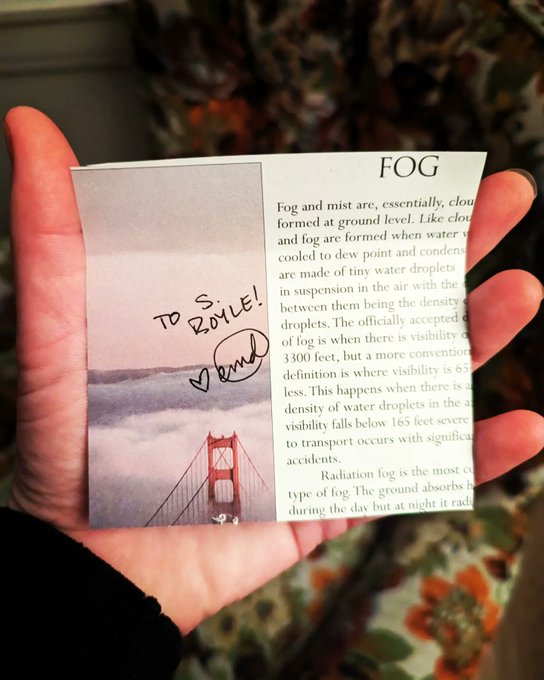 TO S.
BOYLE!
♡ emd
FOG
Fog and mist are, essentially, clou
formed at ground level. Like clou
and fog are formed when water v
cooled to dew point and condens
are made of tiny water droplets
in suspension in the air with the
between them being the density
droplets. The officially accepted d
of fog is when there is visibility o
3300 feet, but a more convention
definition is where visibility is 65
less. This happens when there is a
density of water droplets in the a
visibility falls below 165 feet severe
to transport occurs with significa
accidents.
Radiation fog is the most co
type of fog. The ground absorbs h
during the day but at night it radi